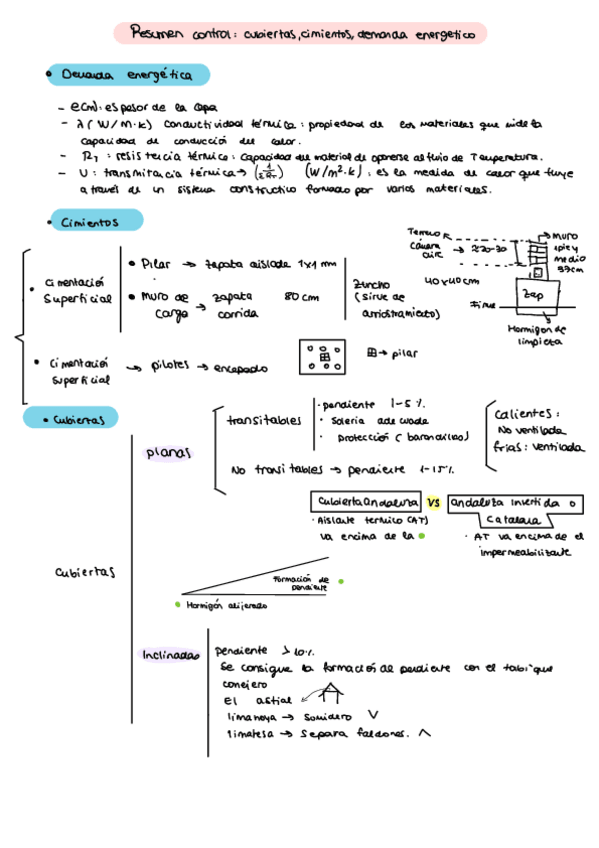 Resumen control: cubiertas, cimientos, demanda energetico
• Demanda energética
- e(m): espesor de la capa
- λ (W/m·k) conductividad térmica: propiedad de los materiales que mide la
capacidad de conducción del calor.
- RT: resistencia térmica: capacidad del material de oponerse al flujo de Temperatura.
- U: transmitancia térmica → (1/ΣRT) (W/m²·k): es la medida de calor que fluye
a través de un sistema constructivo formado por varios materiales.
• Cimientos
• Cimentación
Superficial
• Pilar → zapata aislada 1x1 mm
• muro de
carga → zapata
corrida
80 cm
Zuncho
(sirve de
arriostramiento)
40x40cm
Terreno
Cámara
aire
→ 20-30
→ muro
1 pie y
medio
37cm
Zap
Firme
Hormigón de
limpieza
• Cimentación
superficial
→ pilotes → encepado
→ pilar
• Cubiertas
Cubiertas
planas
transitables
· pendiente 1-5 %.
· Soleria adecuada
· protección (barandillas)
No transitables → pendiente 1-15%
Calientes:
No ventilada
frías: ventilada
Cubierta Andaluza VS andaluza invertida o
Catalana
· Aislante termico (AT)
va encima de la
· AT va encima de el
impermeabilizante
Formación de
pendiente
Hormigón aligerado
Inclinadas
pendiente > 10%
Se consigue la formación de pendiente con el tabique
conejero
El astial
limahoya → Sumidero V
limatesa → Separa faldones. Λ